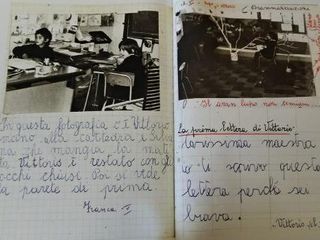 In questa fotografia c'è Vittorio
vicino alla cattedra e Silvia
na che mangia la mati
ta. Vittorio è restato con gli
occhi chiusi. Poi si vede
la parete di prima.
Franca
Il gran lupo non
La prima lettera di Vittorio
Carissima maestra
io ti scrivo questa
lettera perché sei
brava.
Vittorio